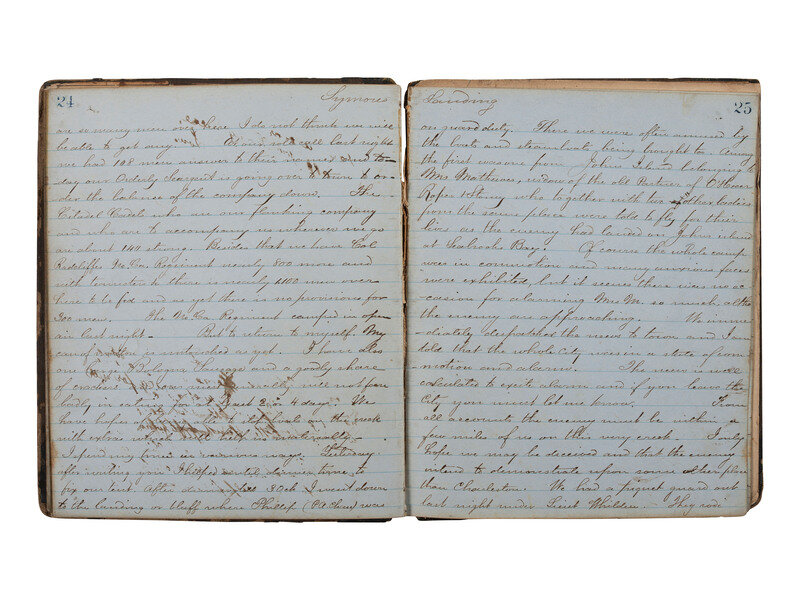 24
Symones
are so many men over here I do not think we will
be able to get any. At our roll call last night
we had 108 men answer to their names and to-
day our Orderly Sargent is going over to town to or-
der the balance of the company down. The
Citadel Cadets who are our flanking company
and who are to accompany us wherever we go
are about 140 strong. Besides that we have Col
Radcliffes No. Ca. Regiment nearly 800 more and
with ourselves there is nearly 1100 men over
here to be fed and as yet there is no provisions for
300 men. The No. Ca. Regiment camped in open
air last night. But to return to myself. My
can of is untouched as yet. I have also
one and a goodly share
of crackers will not fare
badly for at least 3 or 4 days. We
have hopes on the creek
with extras
Spending time in various ways. Yesterday
after writing you I helped until dinner time to
fix our tent. After dinner say 3 Och I went down
to the landing or bluff where Phillip (P A Chase) was
Landing
25
on guard duty. There we were often amused by
the boats and steamboats being brought to. Among
the first was one from John Island belonging to
Mrs Mathewes, widow of the old Partner of O'Hear
Roper & Stoney who together with two other ladies
from the same place were told to fly for their
lives as the enemy had landed on John island
at Seabrooks Bay. Of course the whole camp
was in commotion and many anxious faces
were exhibited, but it seems there was no oc-
casion for alarming Mrs M. so much altho
the enemy are approaching. We imme-
diately despatched the news to town and I am
told that the whole City was in a state of com-
motion and alarm. The news is well
calculated to exite alarm and if you leave the
City you must let me know. From
all accounts the enemy must be within a
few miles of us on this very creek. I only
hope we may be deceived and that the enemy
intend to demonstrate upon some other place
than Charleston. We had a piquet guard out
last night under Lieut Whilden. They rode